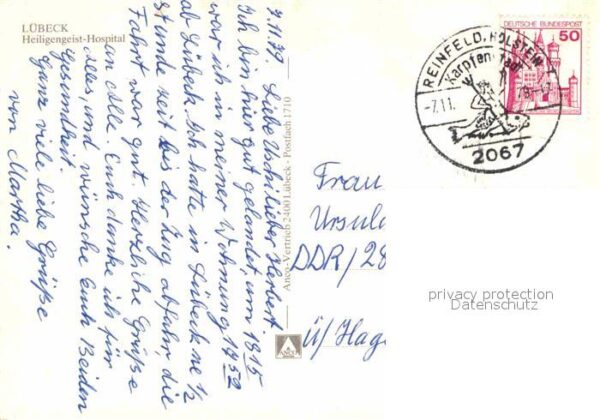 LÜBECK
Heiligengeist-Hospital
7.11.79
Liebe Uschi, lieber Herbert.
Ich bin hier gut gelandet, um 18 15
war ich in meiner Wohnung 17 52
ab Lübeck. Ich hatte in Lübeck ne 1/2
stunde zeit bis der Zug abfuhr, die
Fahrt war gut. Herzliche Grüße
an Alle. Euch danke ich für
Alles, und wünsche Euch Beiden
Gesundheit.
Ganz viele liebe Grüße
von Martha.
Anco-Vertrieb 2400 Lübeck - Postfach 1710
ANCO
REINFELD, HOLSTEIN
Karpfenstadt
-7.11.
2067
DEUTSCHE BUNDESPOST
50
Frau
Ursula
DDR/28
Ü/Hage
privacy protection
Datenschutz